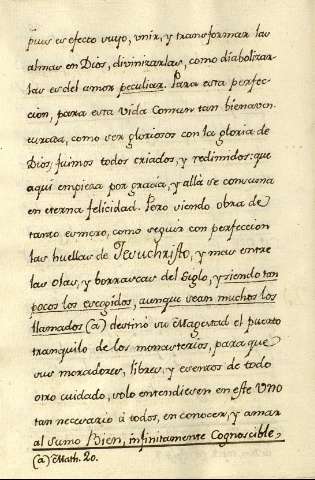 pius es efecto suyo, vnir, y transformar las
almas en Dios, divinizarlas, como diabolizar-
las es del amor peculiar. Para esta perfec-
cion, para esta vida comun tan bienaven-
turada, como ser gloriosos con la gloria de
Dios, fuimos todos criados, y redimidos: que
aqui empieza por gracia, y allà se consuma
en eterna felicidad. Pero siendo obra de
tanto esmero, como seguir con perfeccion
las huellas de Jesuchristo, y mas entre
las olas, y borrascas del siglo, y siendo tan
pocos los escogidos, aunque sean muchos los
llamados (a) destinò su Magestad el puerto
tranquilo de los monasterios, para que
sus moradores, libres, y esentos de todo
otro cuidado, solo entendiesen en este Uno
tan necesario à todos, en conocer, y amar
al Sumo Bien, infinitamente Cognoscible,
(a) Math. 20.